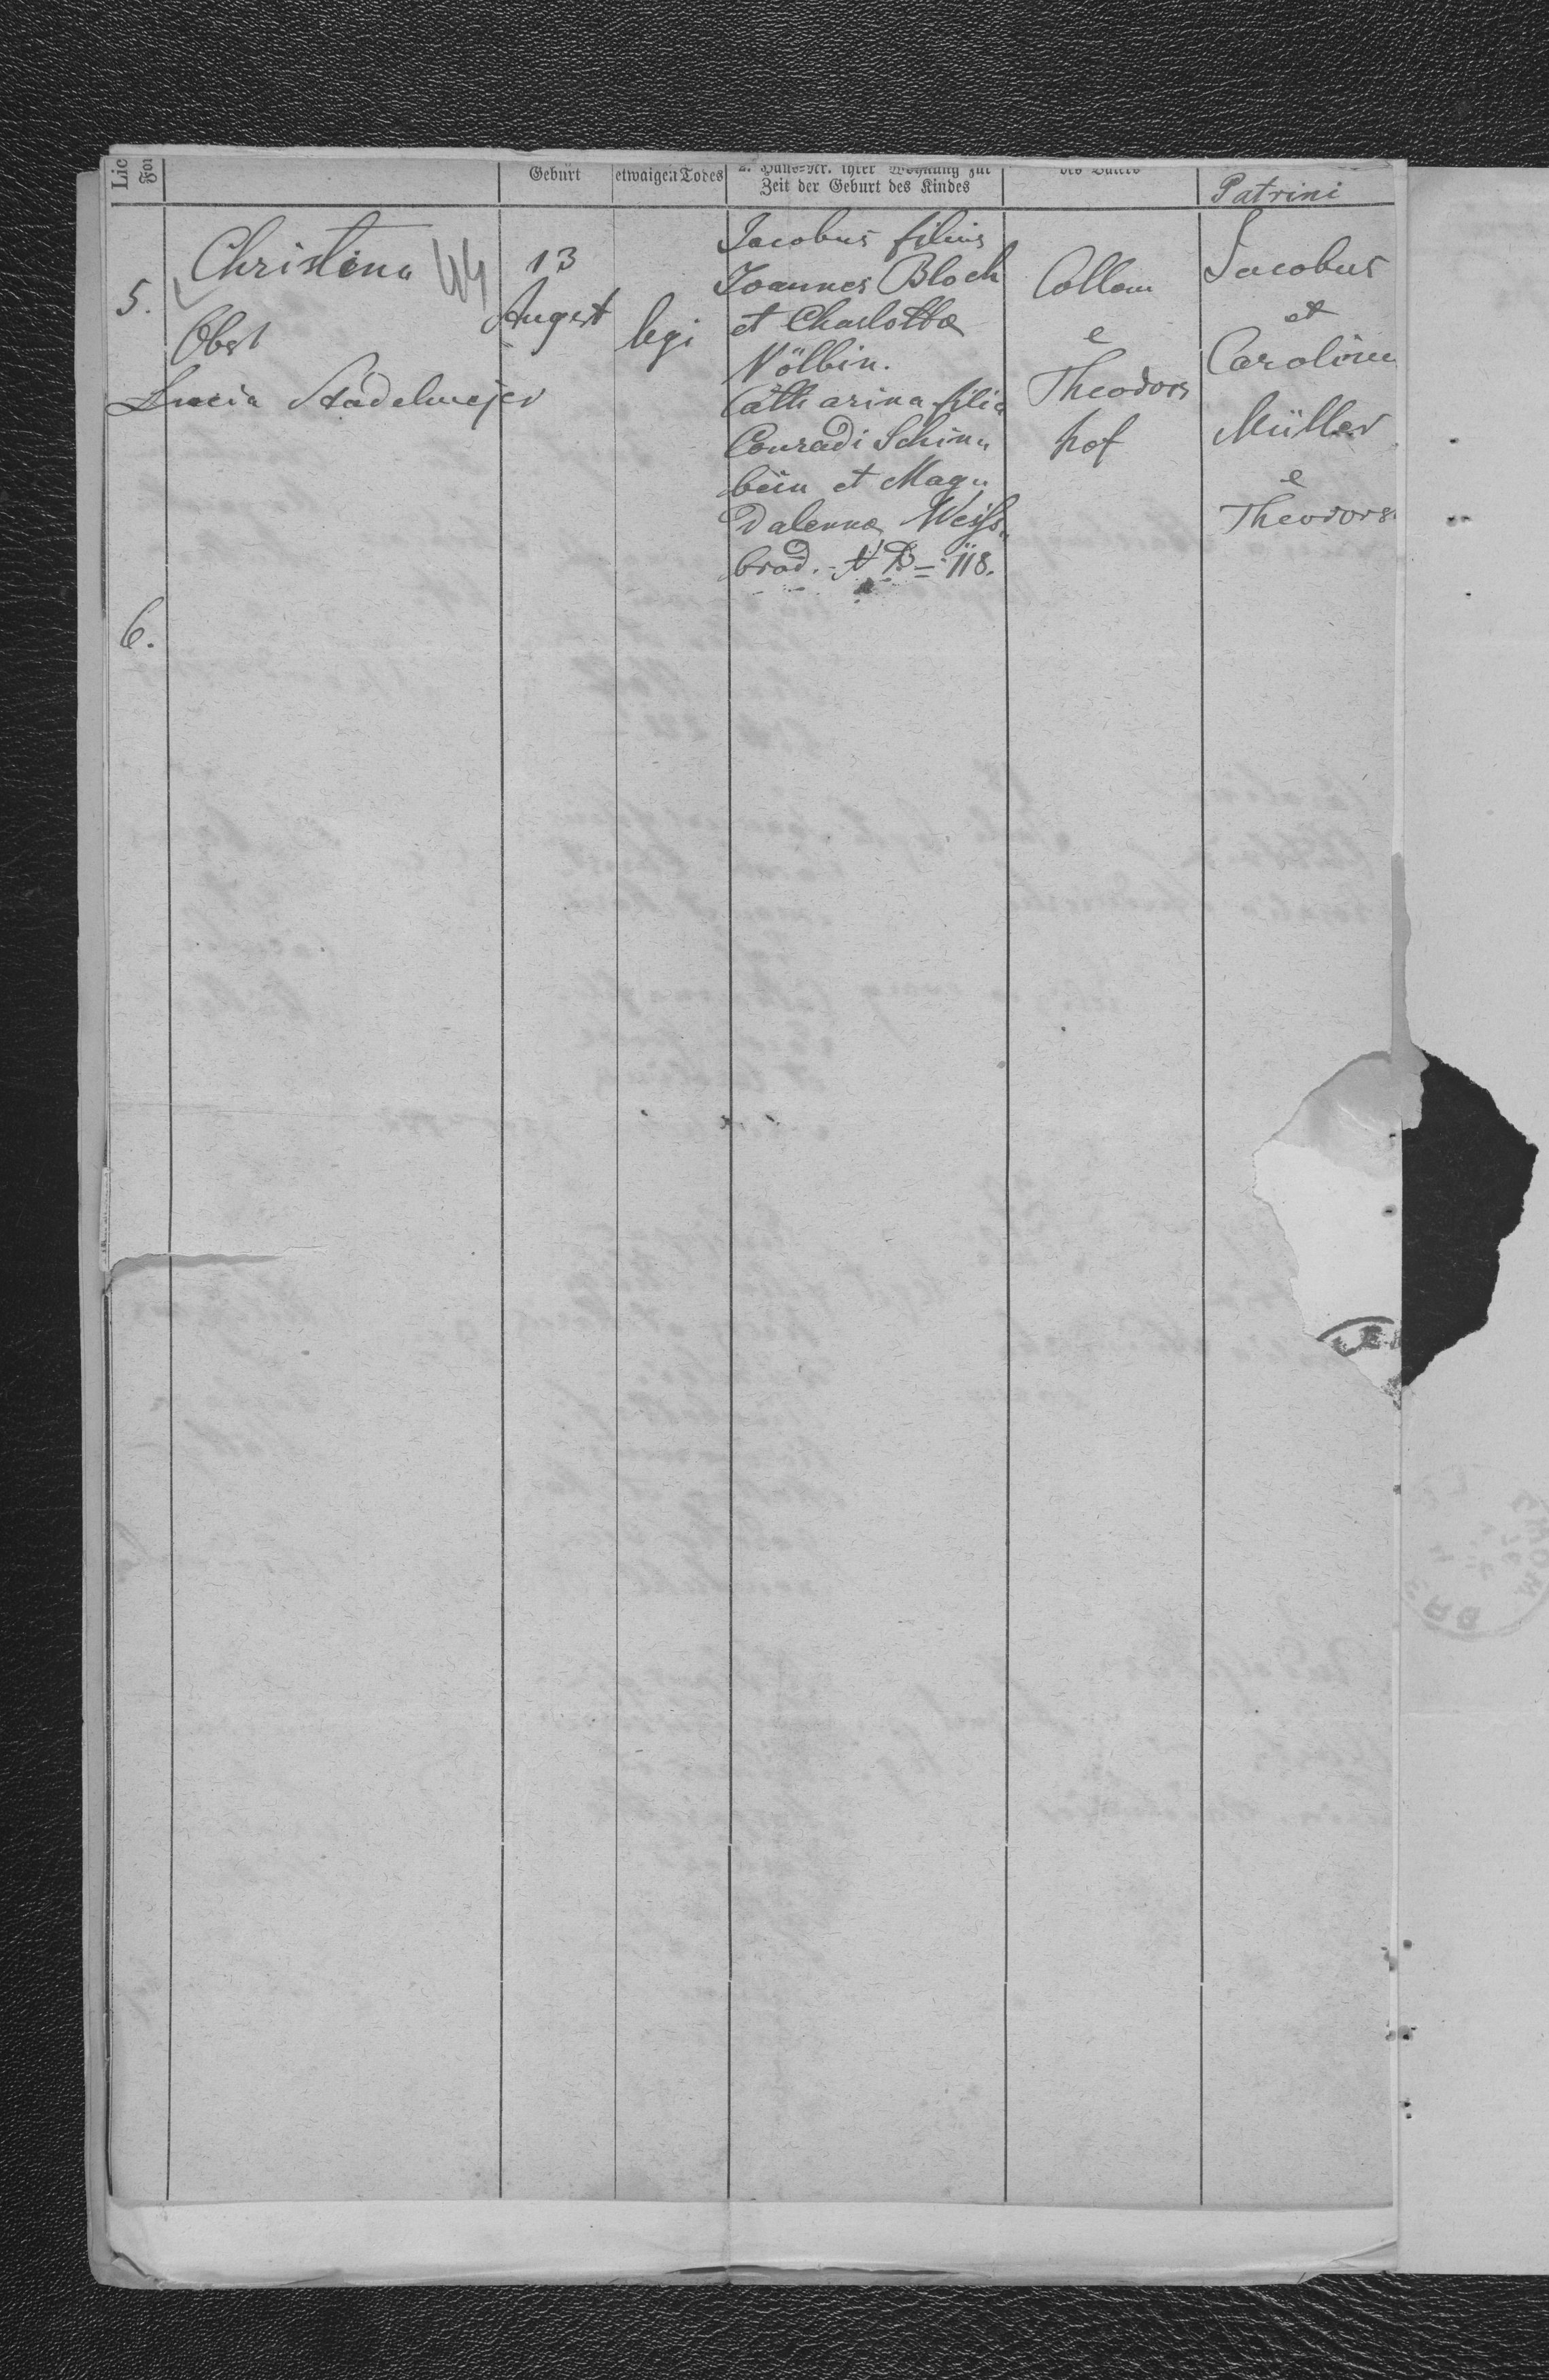 Geburt
etwaigen Todes
2. Haus-Nr. ihrer Wohnung zur
Zeit der Geburt des Kindes
des Vaters
Patrini
5.
Christina
44
Obst
Lucia Stadelmejer
13
August
legi
Jacobus filius
Joannes Bloch
et Charlottæ
Nölbin.
Catharina filia
Conradi Schinn
bein et Mag„
dalennæ Weiss„
brod. N B = 118.
Collon
e
Theodors
hof
Jacobus
et
Carolina
Müller
e
Theodors
6.